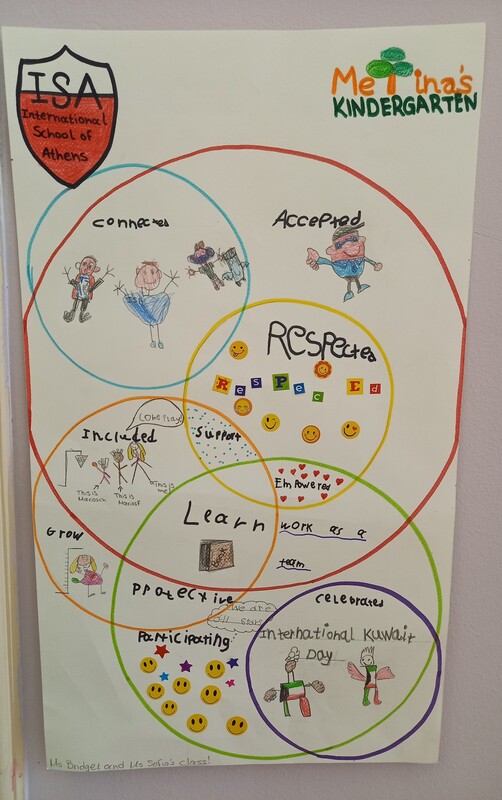 ISA
International
School of
Athens
Metina's
KINDERGARTEN
connected
Accepted
RESPECTED
RESPECEd
Included
Support
Empowered
This is
This is
This is
me!
Grow
Learn
work as a
team
protective
we are
all stars
celebrated
Participating
International Kuwait
Day
Ms Bridget and Ms Sofia's class!